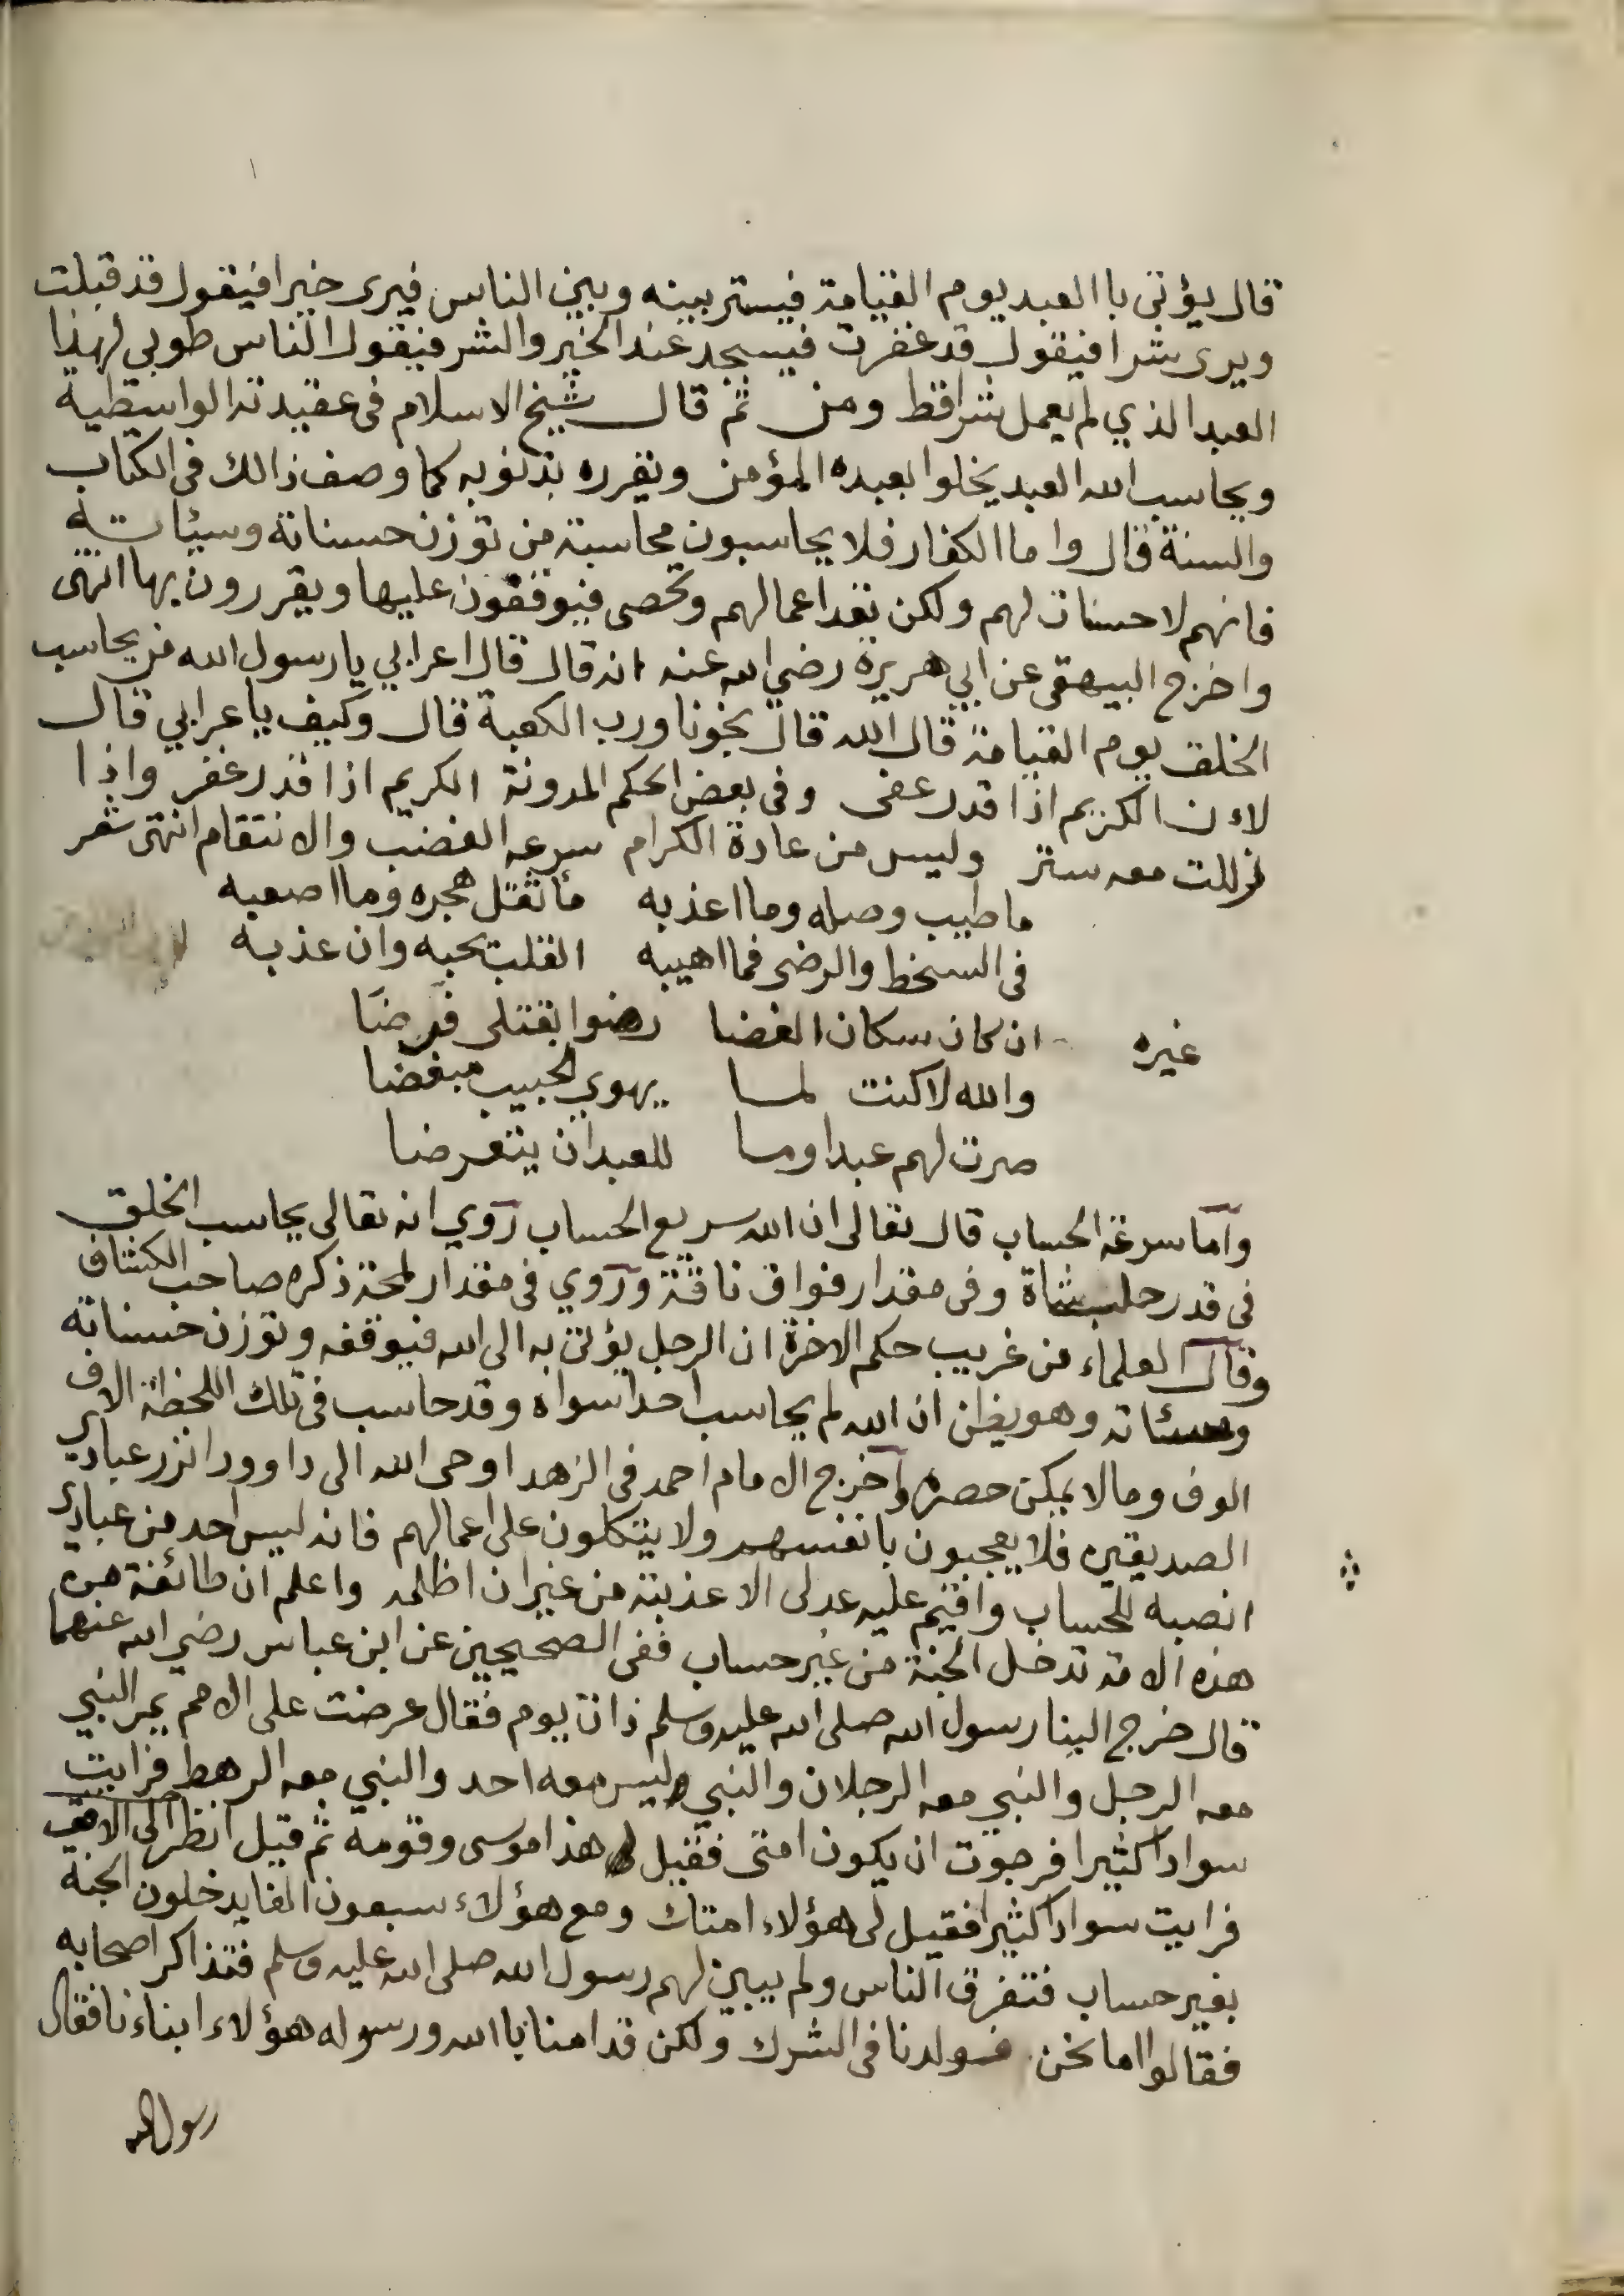 قال يؤتى باالعبد يوم القيامة فيستر بينه وبين الناس فيرى خيرا فيقول قد قبلت
ويرى شرا فيقول قد غفرت فيسجد عند الخير والشر فيقول الناس طوبي لهذا
العبد الذي لم يعمل شرا قط ومن ثم قال شيخ الاسلام في عقيدته الواسطية
ويحاسب الله العبد يخلوا بعبده المؤمن ويقرره بذنوبه كما وصف ذالك في الكتاب
والسنة قال واما الكفار فلا يحاسبون محاسبة من توزن حسناته وسيئاته
فانهم لا حسنات لهم ولكن تعد اعمالهم وتحصى فيوقفون عليها ويقررون بها انتهى
واخرج البيهقى عن ابي هريرة رضي الله عنه انه قال قال اعرابي يا رسول الله من يحاسب
الخلق يوم القيامة قال الله قال نجونا ورب الكعبة قال وكيف يا عرابي قال
لاءن الكريم اذا قدر عفى وفي بعض الحكم المدونة الكريم اذا قدر غفر واذا
زللت معه ستر وليس من عادة الكرام سرعة الغضب والانتقام انتهى شعر
ما طيب وصله وما اعذبه ما تقل هجره وما اصعبه
في السخط والرضى فما اهيبه القلب يحبه وان عذبه
غيره ان كان سكان الغضا رضوا بقتلى فرضا
والله لا كنت لما يهوي الحبيب مبغضا
صرت لهم عبدا وما للعبد ان يتعرضا
وأما سرعة الحساب قال تعالى ان الله سريع الحساب روي انه تعالى يحاسب الخلق
في قدر حلب شاة وفي مقدار فواق ناقة وروي في مقدار لمحة ذكره صاحب الكشاف
وقال العلماء من غريب حكم الاخرة ان الرجل يؤتى به الى الله فيوقفه وتوزن حسناته
وسيئاته وهو يظن ان الله لم يحاسب احدا سواه وقد حاسب في تلك اللحظة الاف
الوف وما لا يمكن حصره وأخرج الامام احمد في الزهد اوحى الله الى داوود انزر عبادي
الصديقين فلا يعجبون بانفسهم ولا يتكلون على اعمالهم فانه ليس احد من عبادي
انصبه للحساب واقيم عليه عدلى الا عذبته من غير ان اظلمه واعلم ان طائفة من
هذه الامة تدخل الجنة من غير حساب ففي الصحيحين عن ابن عباس رضي الله عنهما
قال خرج الينا رسول الله صلى الله عليه وسلم ذات يوم فقال عرضت على الامم يمر النبي
معه الرجل والنبي معه الرجلان والنبي وليس معه احد والنبي معه الرهط فرايت
سوادا كثيرا فرجوت ان يكون امتى فقيل لي هذا موسى وقومه ثم قيل انظر الى الافق
فرايت سوادا كثيرا فقيل لى هؤلاء امتك ومع هؤلاء سبعون الفا يدخلون الجنة
بغير حساب فتفرق الناس ولم يبين لهم رسول الله صلى الله عليه وسلم فتذاكر اصحابه
فقالوا اما نحن فولدنا في الشرك ولكن قد امنا باالله ورسوله هؤلاء ابناءنا فقال
رسول الله